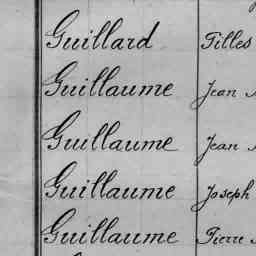 Guillard Gilles
Guillaume Jean
Guillaume Jean
Guillaume Joseph
Guillaume Pierre